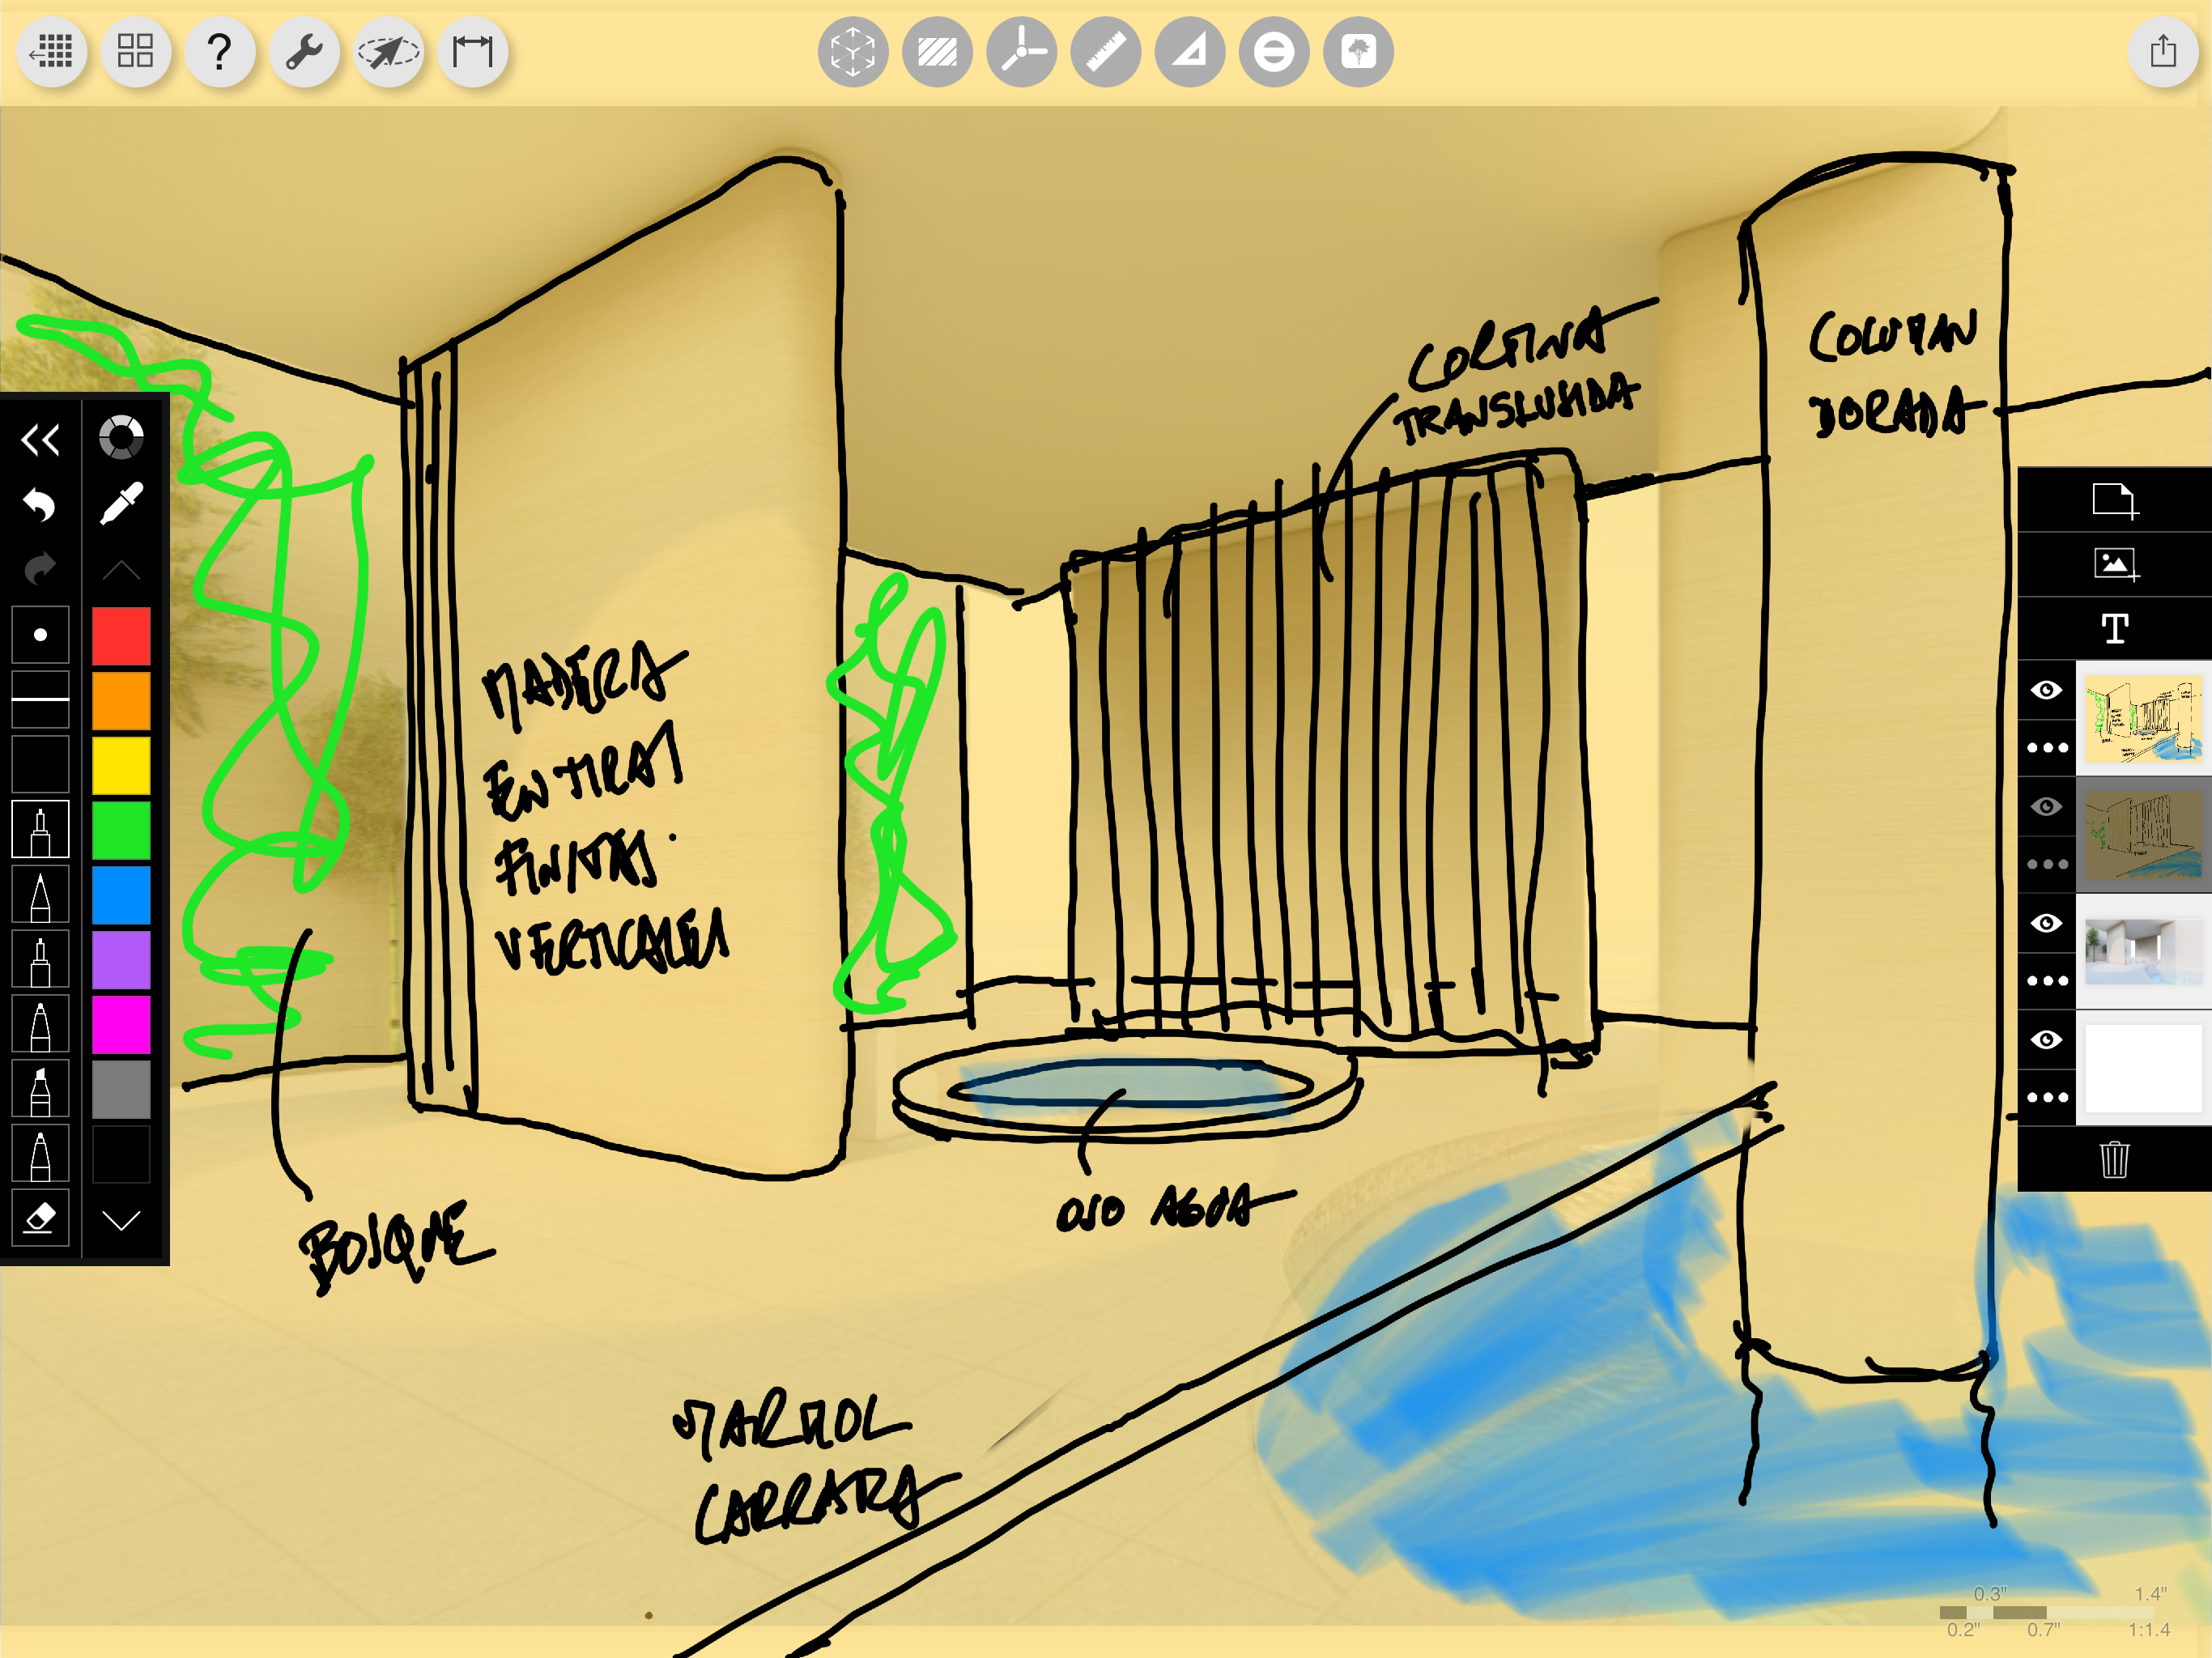 ?
CORTINA
TRANSLUSIDA
COLUMAN
DORADA
T
MADERA
EN TIRAS
FINITAS
VERTICALES
BOSQUE
OJO AGUA
MARMOL
CARRARA
0.3" 1.4"
0.2" 0.7" 1:1.4